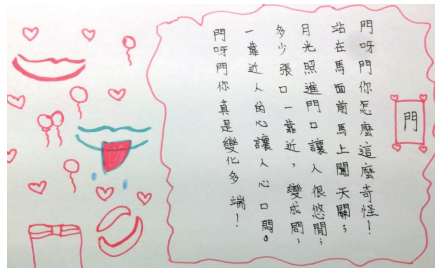 門
門呀門你怎麼這麼奇怪！
站在馬面前馬上闖天關；
月光照進門口讓人很悠閒；
多少張口一靠近，變成問；
一靠近人的心讓人心口悶。
門呀門你真是變化多端！